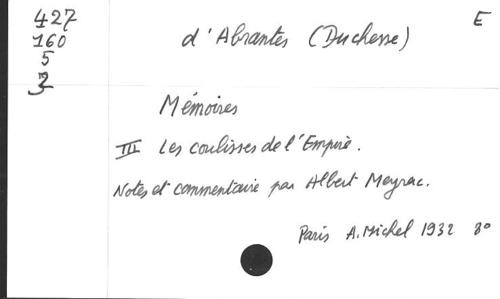 427
160
5
3
E
d'Abrantès (Duchesse)
Mémoires
III Les coulisses de l'Empire.
Notes et commentaire par Albert Meyrac.
Paris A. Michel 1932 8o